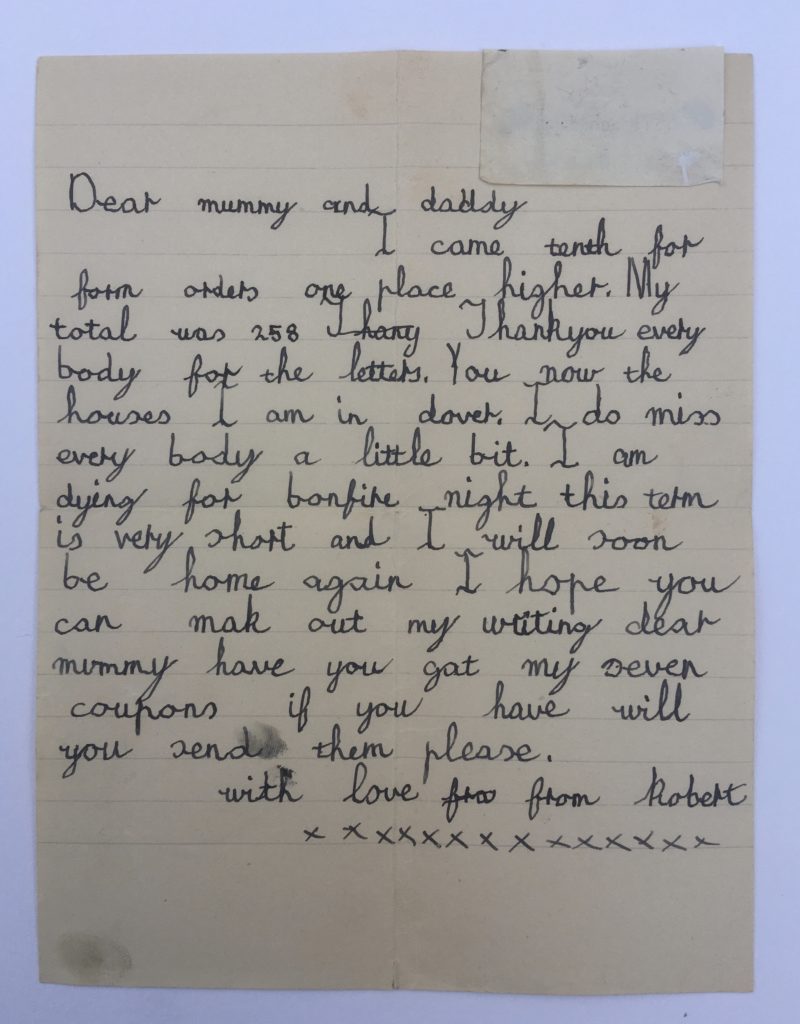 Dear mummy and daddy
I came tenth for
form orders one place higher. My
total was 258 Thang Thankyou every
body for the letters. You now the
houses I am in dover. I do miss
every body a little bit. I am
dying for bonfire night this term
is very short and I will soon
be home again I hope you
can mak out my writing dear
mummy have you gat my seven
coupons if you have will
you send them please.
with love fro from Robert
x x x x x x x x x x x x x x